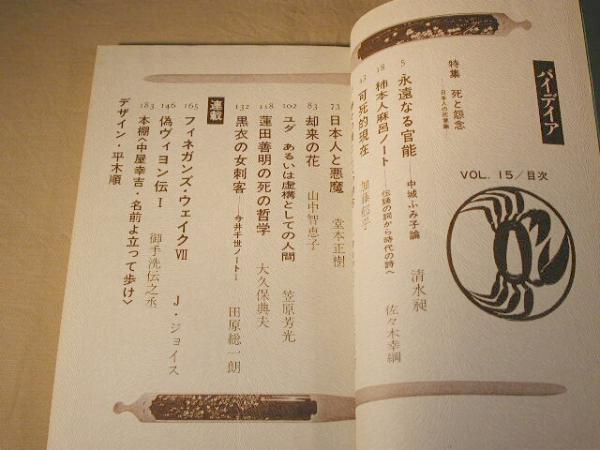 パイデイア
VOL. 15/目次
特集 死と怨念
日本人の死業論
5 永遠なる官能──中城ふみ子論 清水昶
18 柿本人麻呂ノート──伝誦の詞から時代の詩へ 佐々木幸綱
43 可死的現在 加藤郁乎
73 日本人と悪魔 堂本正樹
83 却来の花 山中智恵子
102 ユダ あるいは虚構としての人間 笠原芳光
118 蓮田善明の死の哲学 大久保典夫
132 黒衣の女刺客──今井千世ノート1 田原総一朗
連載
165 フィネガンズ・ウェイクⅦ J・ジョイス
146 偽ヴィヨン伝Ⅰ 御手洗伝之丞
183 本棚〈中屋幸吉・名前よ立って歩け〉
デザイン・平木順